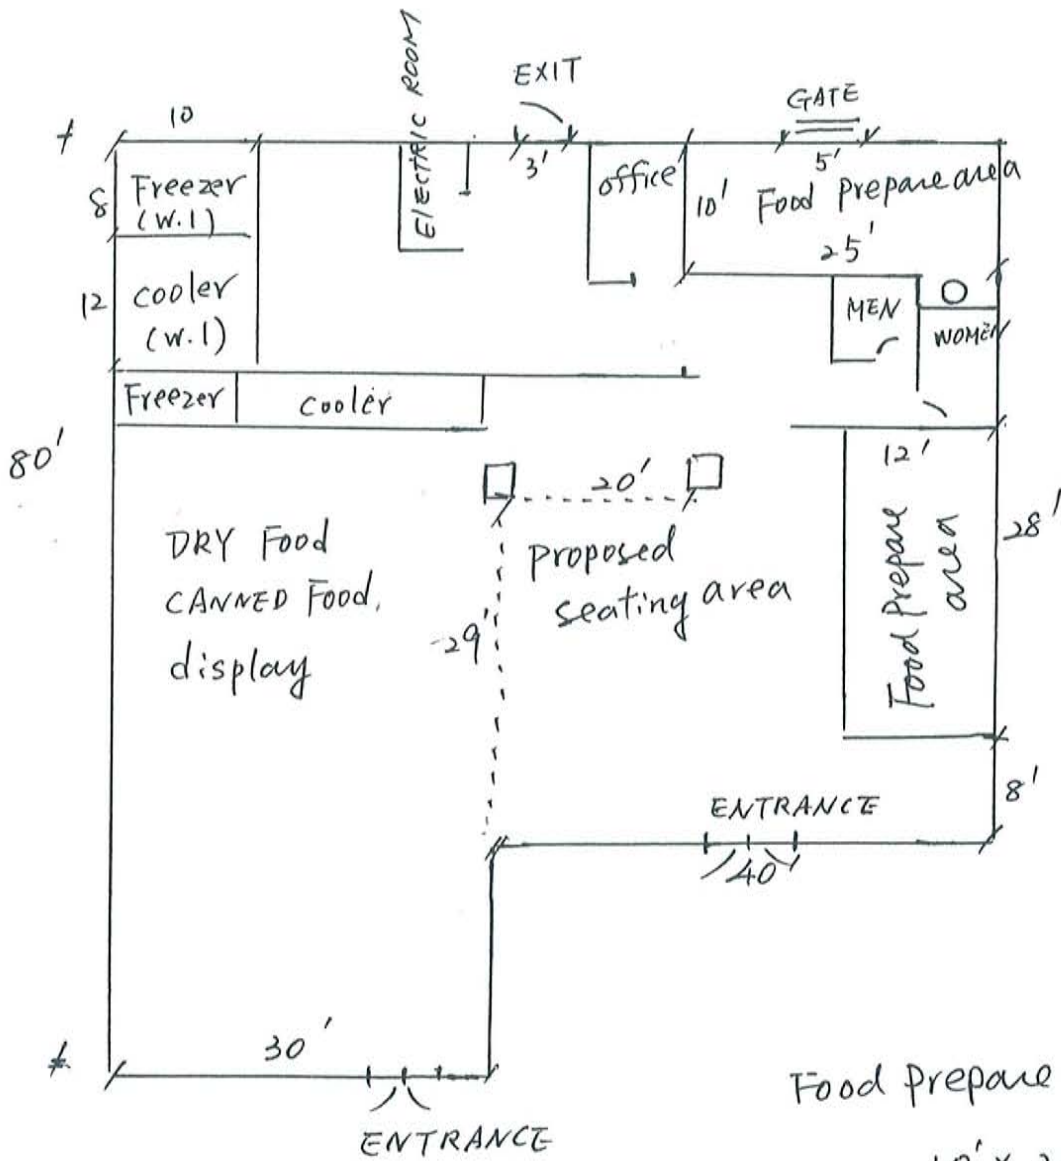 ELECTRIC ROOM
EXIT
GATE
10
3'
5'
8
Freezer
(W.I)
office
10'
Food Prepare area
25'
12
cooler
(W.I)
MEN
WOMEN
Freezer
cooler
80'
20'
12'
28'
DRY Food
CANNED Food,
display
proposed
seating area
29'
Food Prepare
area
8'
ENTRANCE
40'
30'
ENTRANCE
Food Prepare